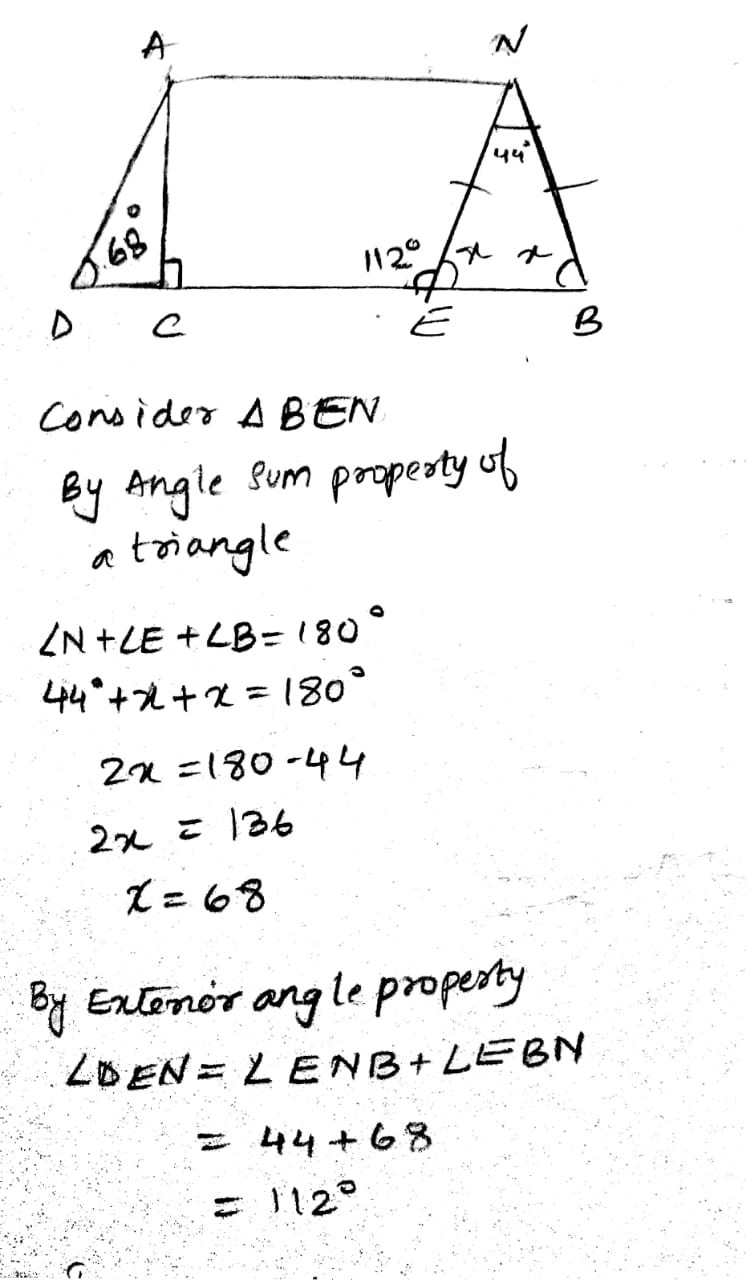 A N
44°
68°
112° x x
D C E B
Consider Δ BEN
By Angle Sum property of
a triangle
∠N + ∠E + ∠B = 180°
44° + x + x = 180°
2x = 180 - 44
2x = 136
x = 68
By Exterior angle property
∠DEN = ∠ENB + ∠EBN
= 44 + 68
= 112°